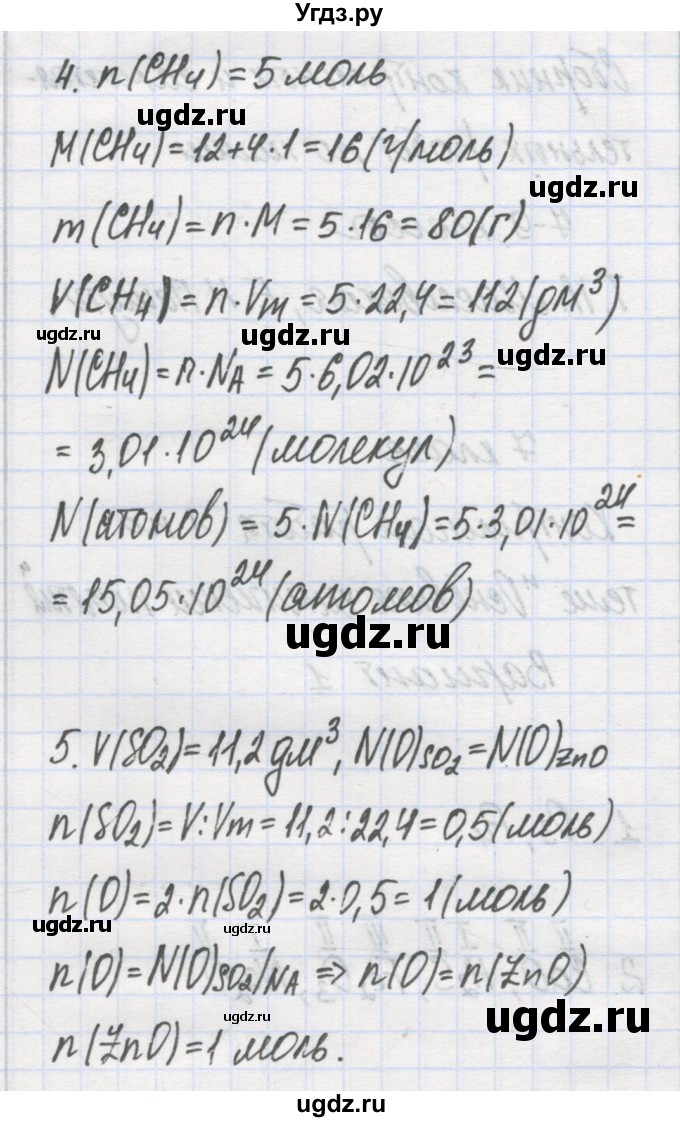 Угдз.ру
4. n(CH₄) = 5 моль
ugdz.ru
M(CH₄) = 12+4·1 = 16 (г/моль)
ugdz.ru
m(CH₄) = n·M = 5·16 = 80 (г)
V(CH₄) = n·Vm = 5·22,4 = 112 (дм³)
ugdz.ru
ugdz.ru
N(CH₄) = n·N_A = 5·6,02·10²³ =
= 3,01·10²⁴ (молекул)
N(атомов) = 5·N(CH₄) = 5·3,01·10²⁴ =
= 15,05·10²⁴ (атомов)
ugdz.ru
5. V(SO₂) = 11,2 дм³, N(O)SO₂ = N(O)ZnO
n(SO₂) = V:Vm = 11,2:22,4 = 0,5 (моль)
n(O) = 2·n(SO₂) = 2·0,5 = 1 (моль)
ugdz.ru
ugdz.ru
n(O) = N(O)SO₂/N_A ⇒ n(O) = n(ZnO)
ugdz.ru
ugdz.ru
n(ZnO) = 1 моль.
ugdz.ru